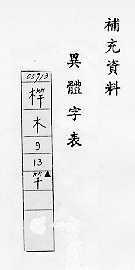 補充資料
異體字表
木
9
13
竿▲